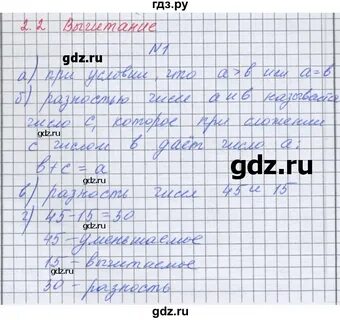 gdz.ru
2.2 Вычитание
N1
а) при условии, что a > b или a = b
б) разностью чисел a и b называется
число c, которое при сложении
с числом b даёт число a:
b + c = a
в) разность чисел 45 и 15
г) 45 - 15 = 30
45 - уменьшаемое
15 - вычитаемое
30 - разность
gdz.ru
gdz.ru
gdz.ru